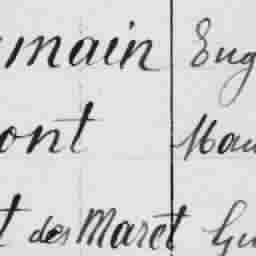 main Eug
ont Mau
t des Maret Gu